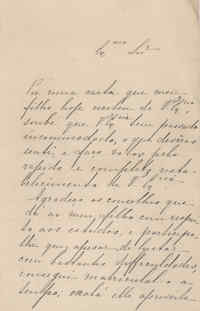 Ex.mo Snr.
Por uma carta que meu
filho hoje recebeu de V. Ex.cia
soube que V. Ex.cia tem passado
incommodado, o que deveras
senti; e faço votos pelo
rapido e completo resta-
belecimento de V. Ex.cia
Agradeço os conselhos que
dá ao meu filho com respei-
to aos estudos, e participo-
lhe que, apesar de luctar
com bastantes difficuldades,
consegui matricula-l-o a
tempo; oxalá elle aproveite